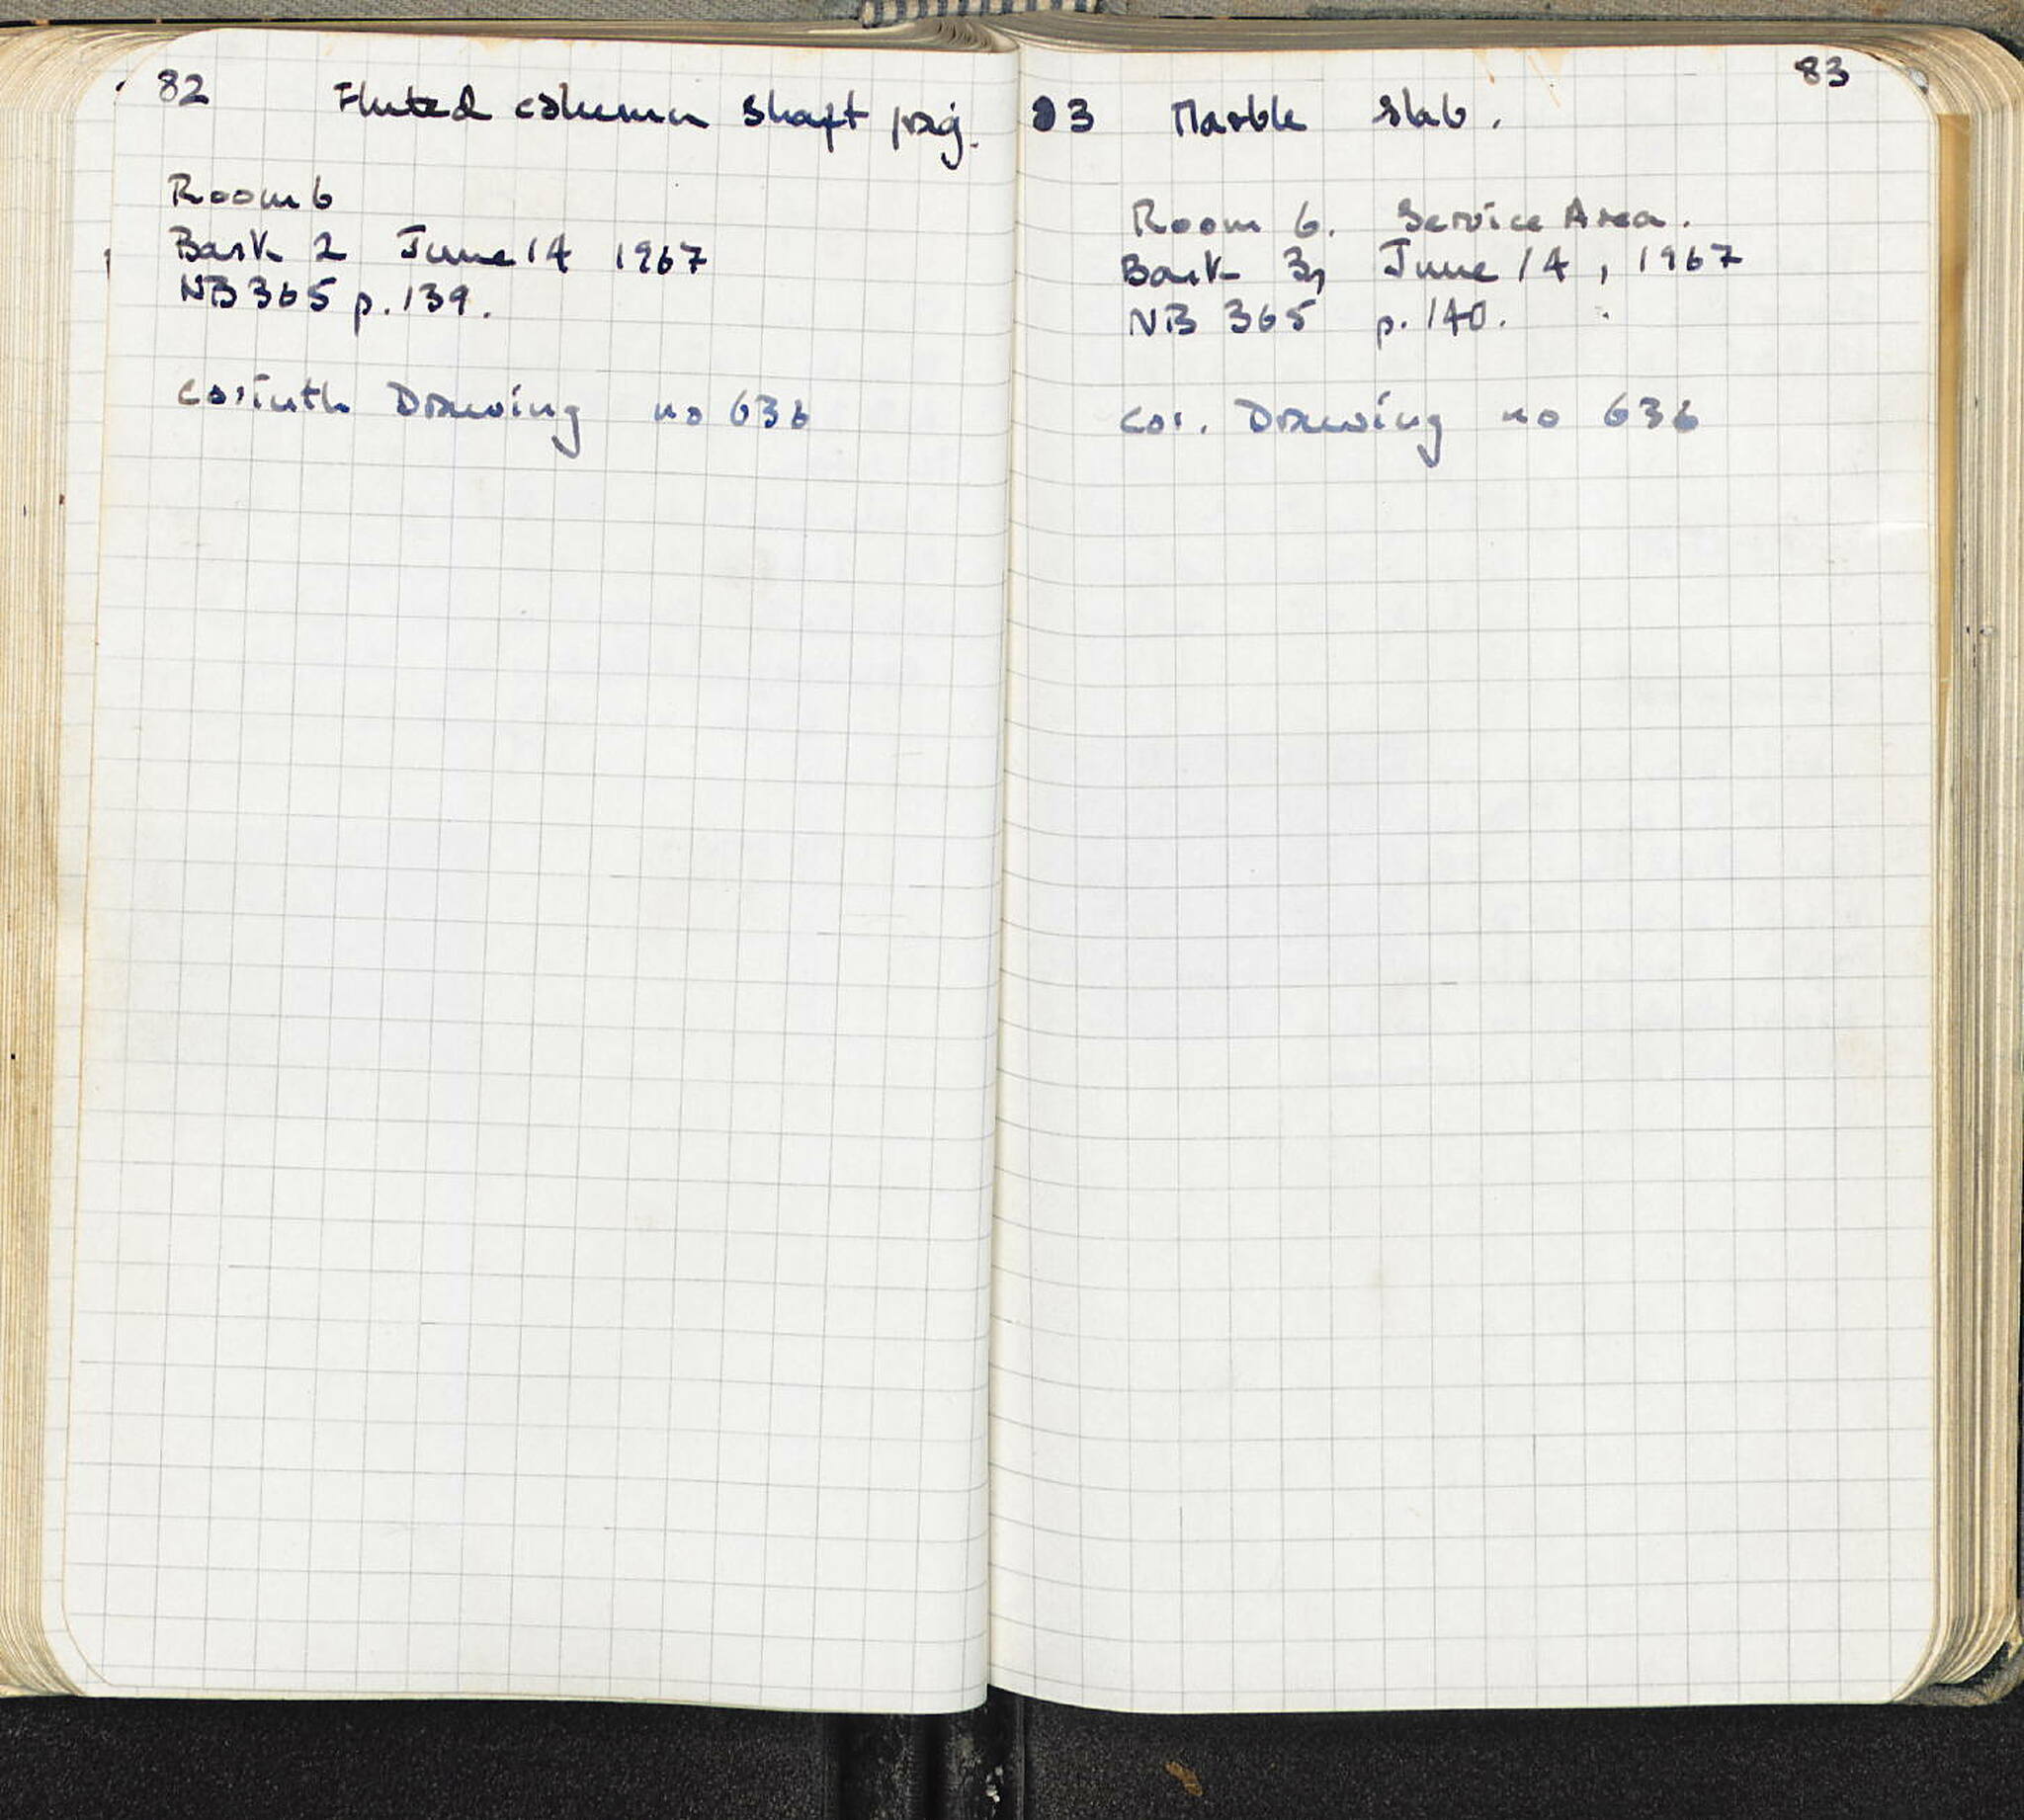 82 Fluted column shaft frag.
Room 6
Bask 2 June 14 1967
NB 365 p. 139.
Corinth Drawing no 636
83
83 Marble slab.
Room 6. Service Area.
Bask 3, June 14, 1967
NB 365 p. 140.
Cor. Drawing no 636